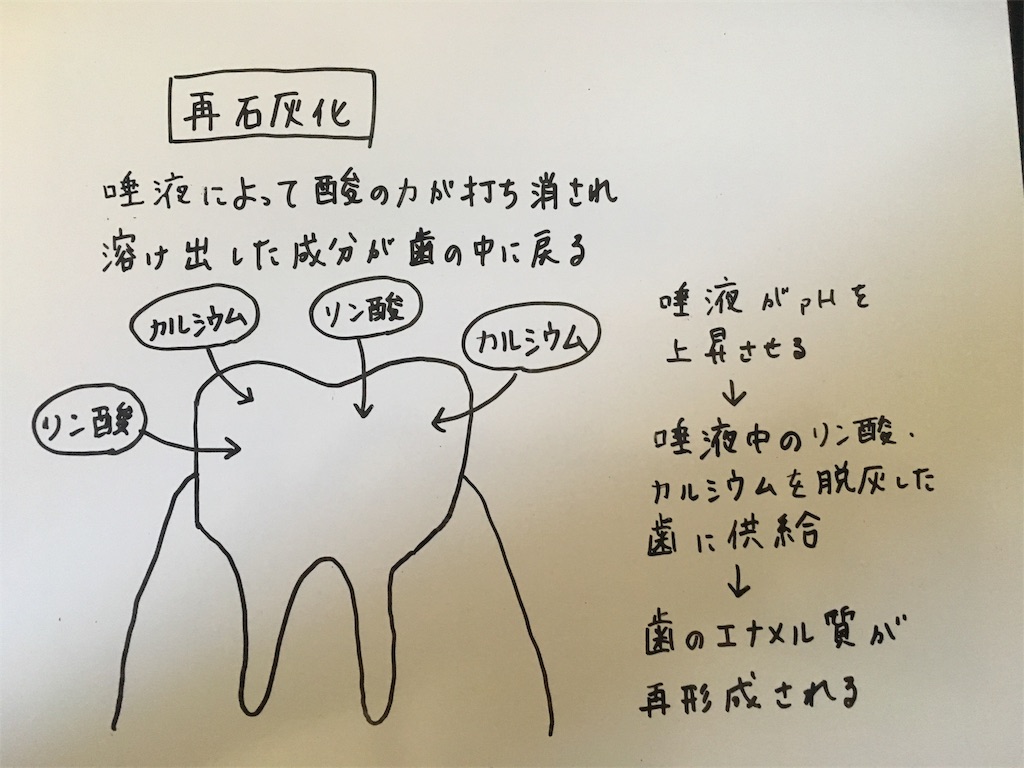 再石灰化
唾液によって酸の力が打ち消され
溶け出した成分が歯の中に戻る
カルシウム
リン酸
カルシウム
リン酸
唾液がpHを
上昇させる
↓
唾液中のリン酸・
カルシウムを脱灰した
歯に供給
↓
歯のエナメル質が
再形成される